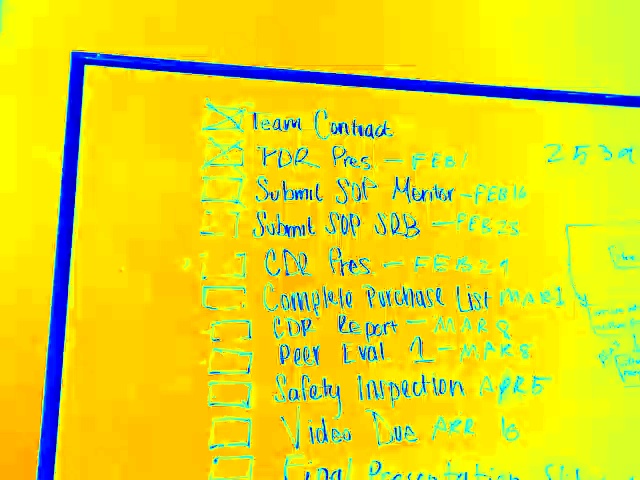 Team Contract
PDR Pres - FEB 1
2539
Submit SOP Mentor - FEB 16
Submit SOP SRB - FEB 23
CDR Pres - FEB 29
Complete Purchase List MAR 1
CDR Report - MAR 8
Peer Eval 1 - MAR 8
Safety Inspection APR 5
Video Due APR 16
Final Presentation